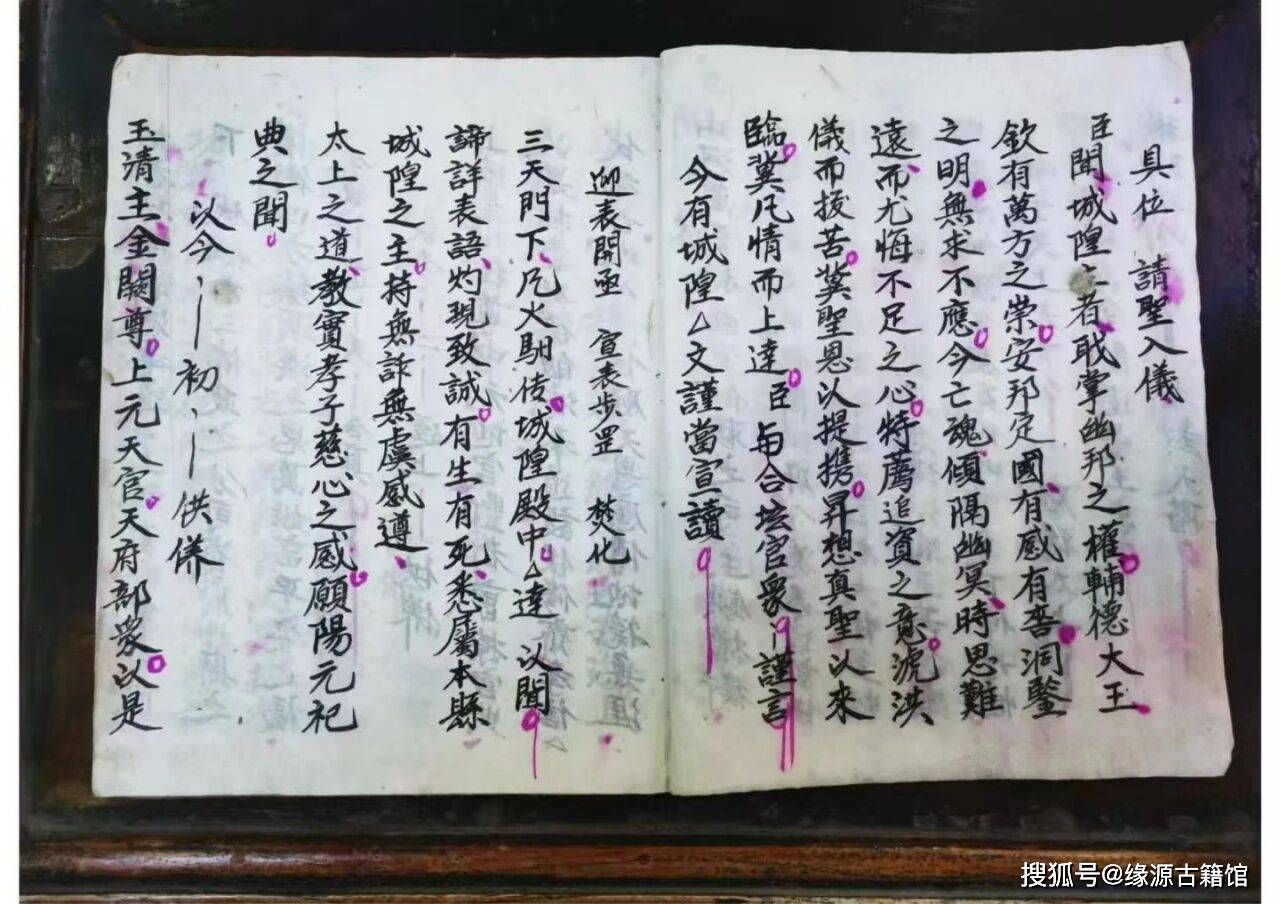 具位 請聖入儀
臣聞城隍〻者職掌幽邦之權輔德大王
欽有萬方之崇安邦定國有感有 洞鑒
之明無求不應今亡魂傾隔幽冥時思難
遠而尤悔不足之心特薦追資之意 洪
儀而拔苦冀聖恩以提携昇想真聖以來
臨冀凡情而上達臣与合坛官衆 謹言
今有城隍厶文謹當宣讀
迎表開函 宣表步罡 焚化
三天門下凡火馹傳城隍殿中厶達 以聞
諦詳表語灼現致誠有生有死悉屬本縣
城隍之主持無詐無虞感遵
太上之道教實孝子慈心之感願陽元祀
典之聞
以今 初 供俻
玉清主金闕尊上元天官天府部衆以是
搜狐号@缘源古籍馆